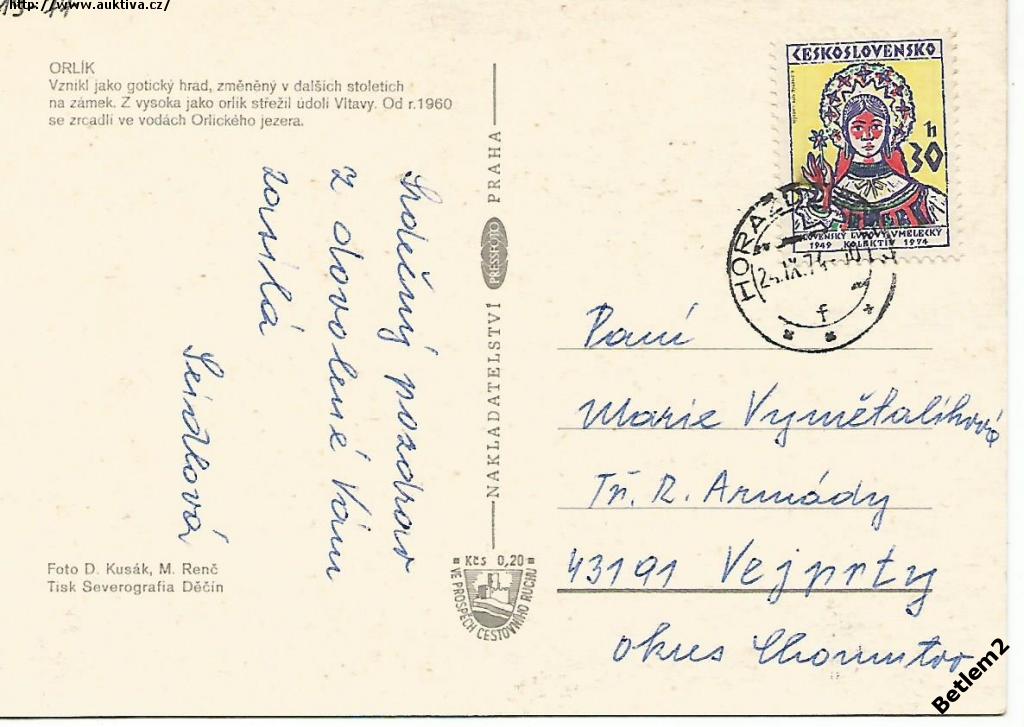 http://www.auktiva.cz/
ORLÍK
Vznikl jako gotický hrad, změněný v dalších stoletích
na zámek. Z vysoka jako orlík střežil údolí Vltavy. Od r.1960
se zrcadlí ve vodách Orlického jezera.
Srdečný pozdrav
z dovolené Vám
zasílá
Seidlová
Foto D. Kusák, M. Renč
Tisk Severografia Děčín
NAKLADATELSTVÍ PRESSFOTO PRAHA
Kčs 0,20
VE PROSPĚCH CESTOVNÍHO RUCHU
ČESKOSLOVENSKO
30 h
SLOVENSKÝ ĽUDOVÝ UMELECKÝ
1949 KOLEKTÍV 1974
HORAŽĎ
24.IX.74
f
Paní
Marie Vymětalíková
Tř. R. Armády
43191 Vejprty
okres Chomutov
Betlem2